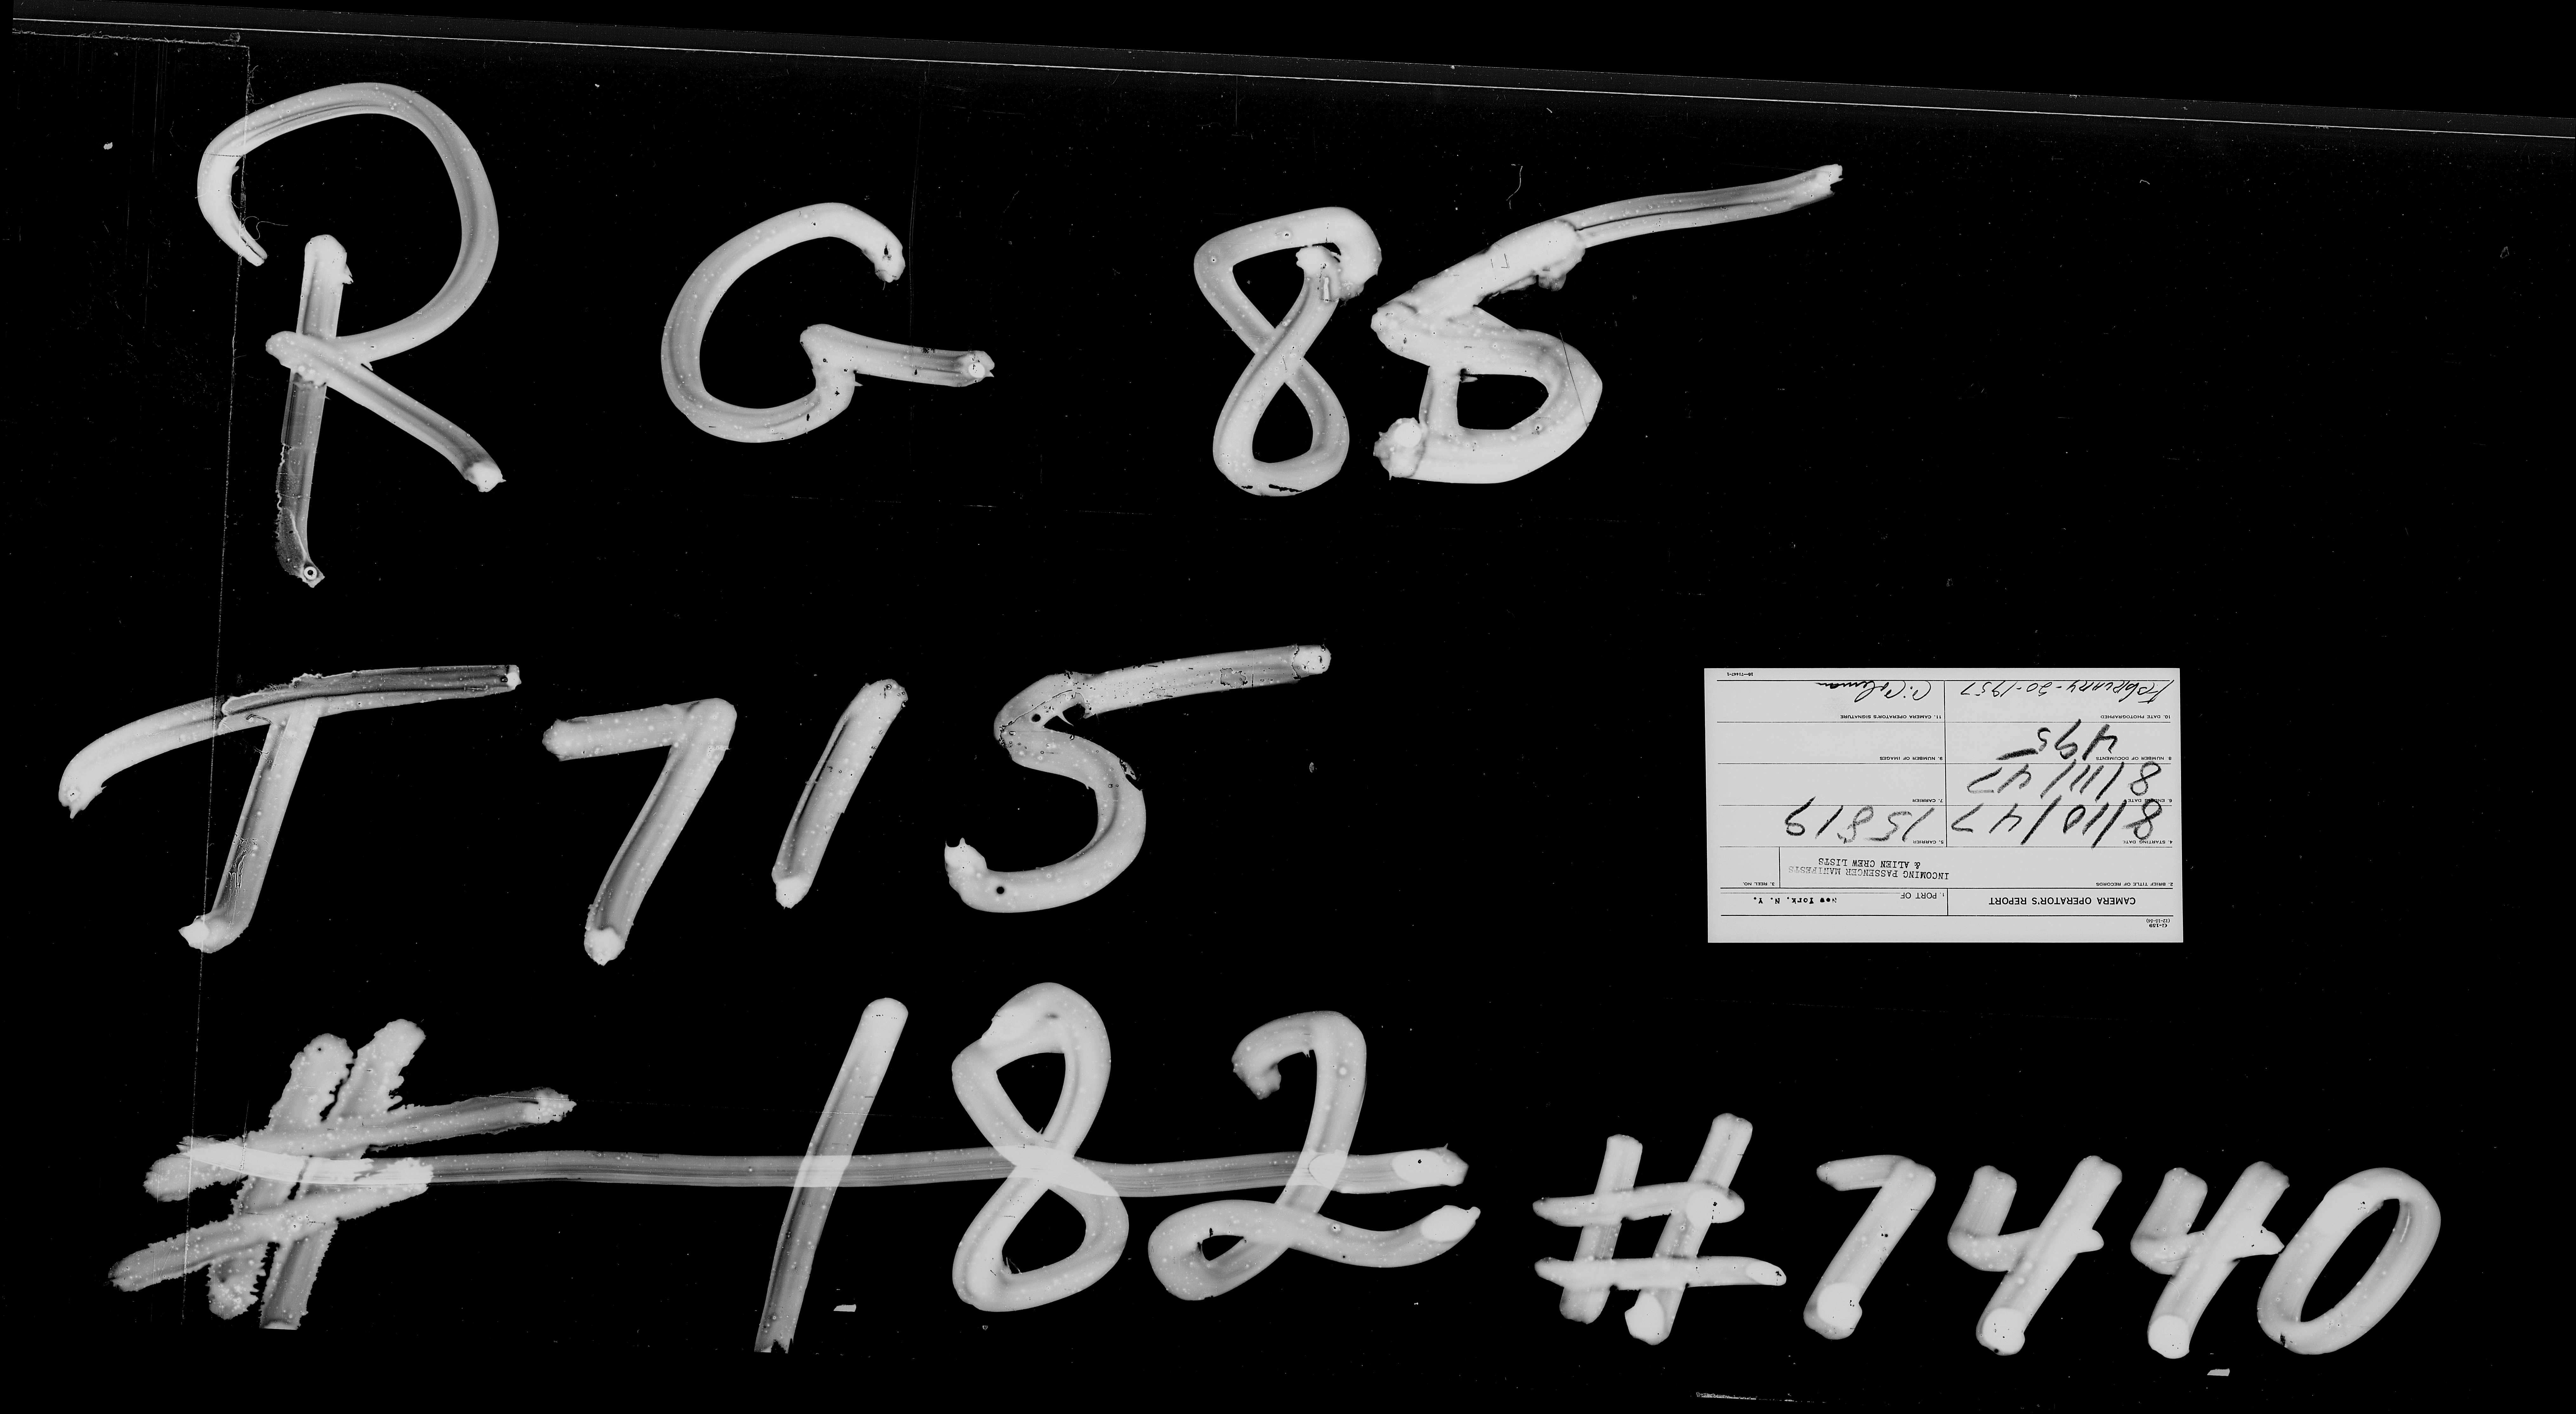 RG 85
T715
# 182 #7440
G-139
(12-15-54)
CAMERA OPERATOR'S REPORT
1. PORT OF New York, N. Y.
2. BRIEF TITLE OF RECORDS
INCOMING PASSENGER MANIFESTS
& ALIEN CREW LISTS
3. REEL NO.
4. STARTING DATE 8/10/47
5. CARRIER 15819
6. ENDING DATE 8/11/47
7. CARRIER
8. NUMBER OF DOCUMENTS 495
9. NUMBER OF IMAGES
10. DATE PHOTOGRAPHED
February-20-1957
11. CAMERA OPERATOR'S SIGNATURE